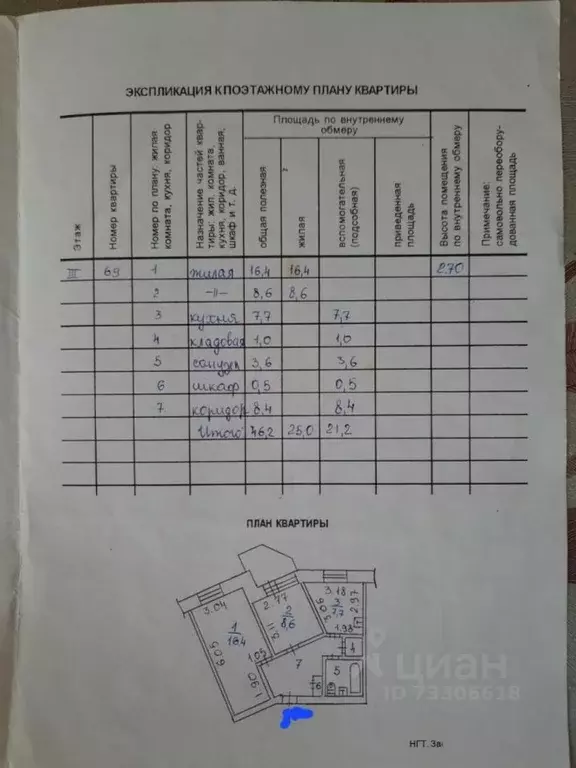 ЭКСПЛИКАЦИЯ К ПОЭТАЖНОМУ ПЛАНУ КВАРТИРЫ
Этаж
Номер квартиры
Номер по плану: жилая комната, кухня, коридор
Назначение частей квар-
тиры: жил. комната,
кухня, коридор, ванная,
шкаф и т. д.
Площадь по внутреннему
обмеру
общая полезная
жилая
вспомогательная
(подсобная)
приведенная
площадь
Высота помещения
по внутреннему обмеру
Примечание:
самовольно переобору-
дованная площадь
III 69 1 жилая 16,4 16,4 2.70
2 -"- 8,6 8,6
3 кухня 7,7 7,7
4 кладовая 1,0 1,0
5 санузел 3,6 3,6
6 шкаф 0,5 0,5
7 коридор 8,4 8,4
Итого 46,2 25,0 21,2
ПЛАН КВАРТИРЫ
3.04
1
6.05
1.90
2.77
2
8,6
3.18
3.06
3
7,7
2.97
1.98
7
5
6
циан
ID 73306618
НГТ. За